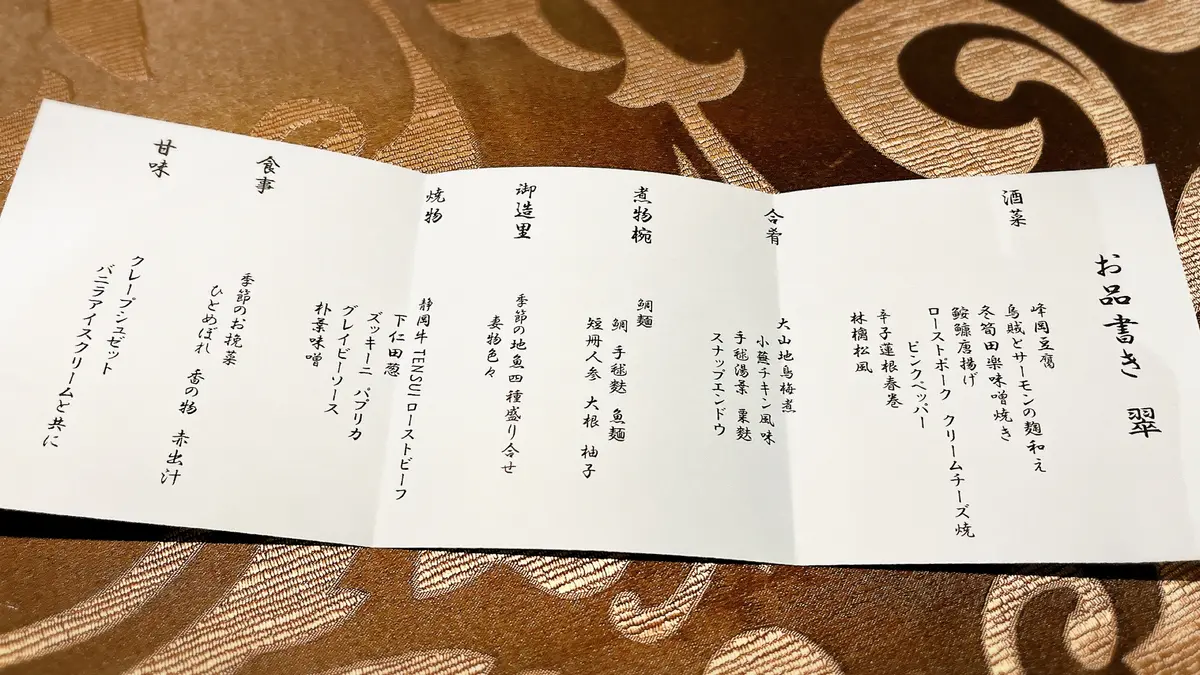 お品書き 翠
酒菜
峰岡豆腐
烏賊とサーモンの麹和え
冬筍田楽味噌焼き
鮟鱇唐揚げ
ローストポーク クリームチーズ焼
ピンクペッパー
辛子蓮根春巻
林檎松風
合肴
大山地鳥梅煮
小蕪チキン風味
手毬湯葉 粟麩
スナップエンドウ
煮物椀
鯛麺
鯛 手毬麩 魚麺
短冊人参 大根 柚子
御造里
季節の地魚四種盛り合せ
妻物色々
焼物
静岡牛 TENSUIローストビーフ
下仁田葱
ズッキーニ パプリカ
グレイビーソース
朴葉味噌
食事
季節のお挽菜
ひとめぼれ 香の物 赤出汁
甘味
クレープシュゼット
バニラアイスクリームと共に